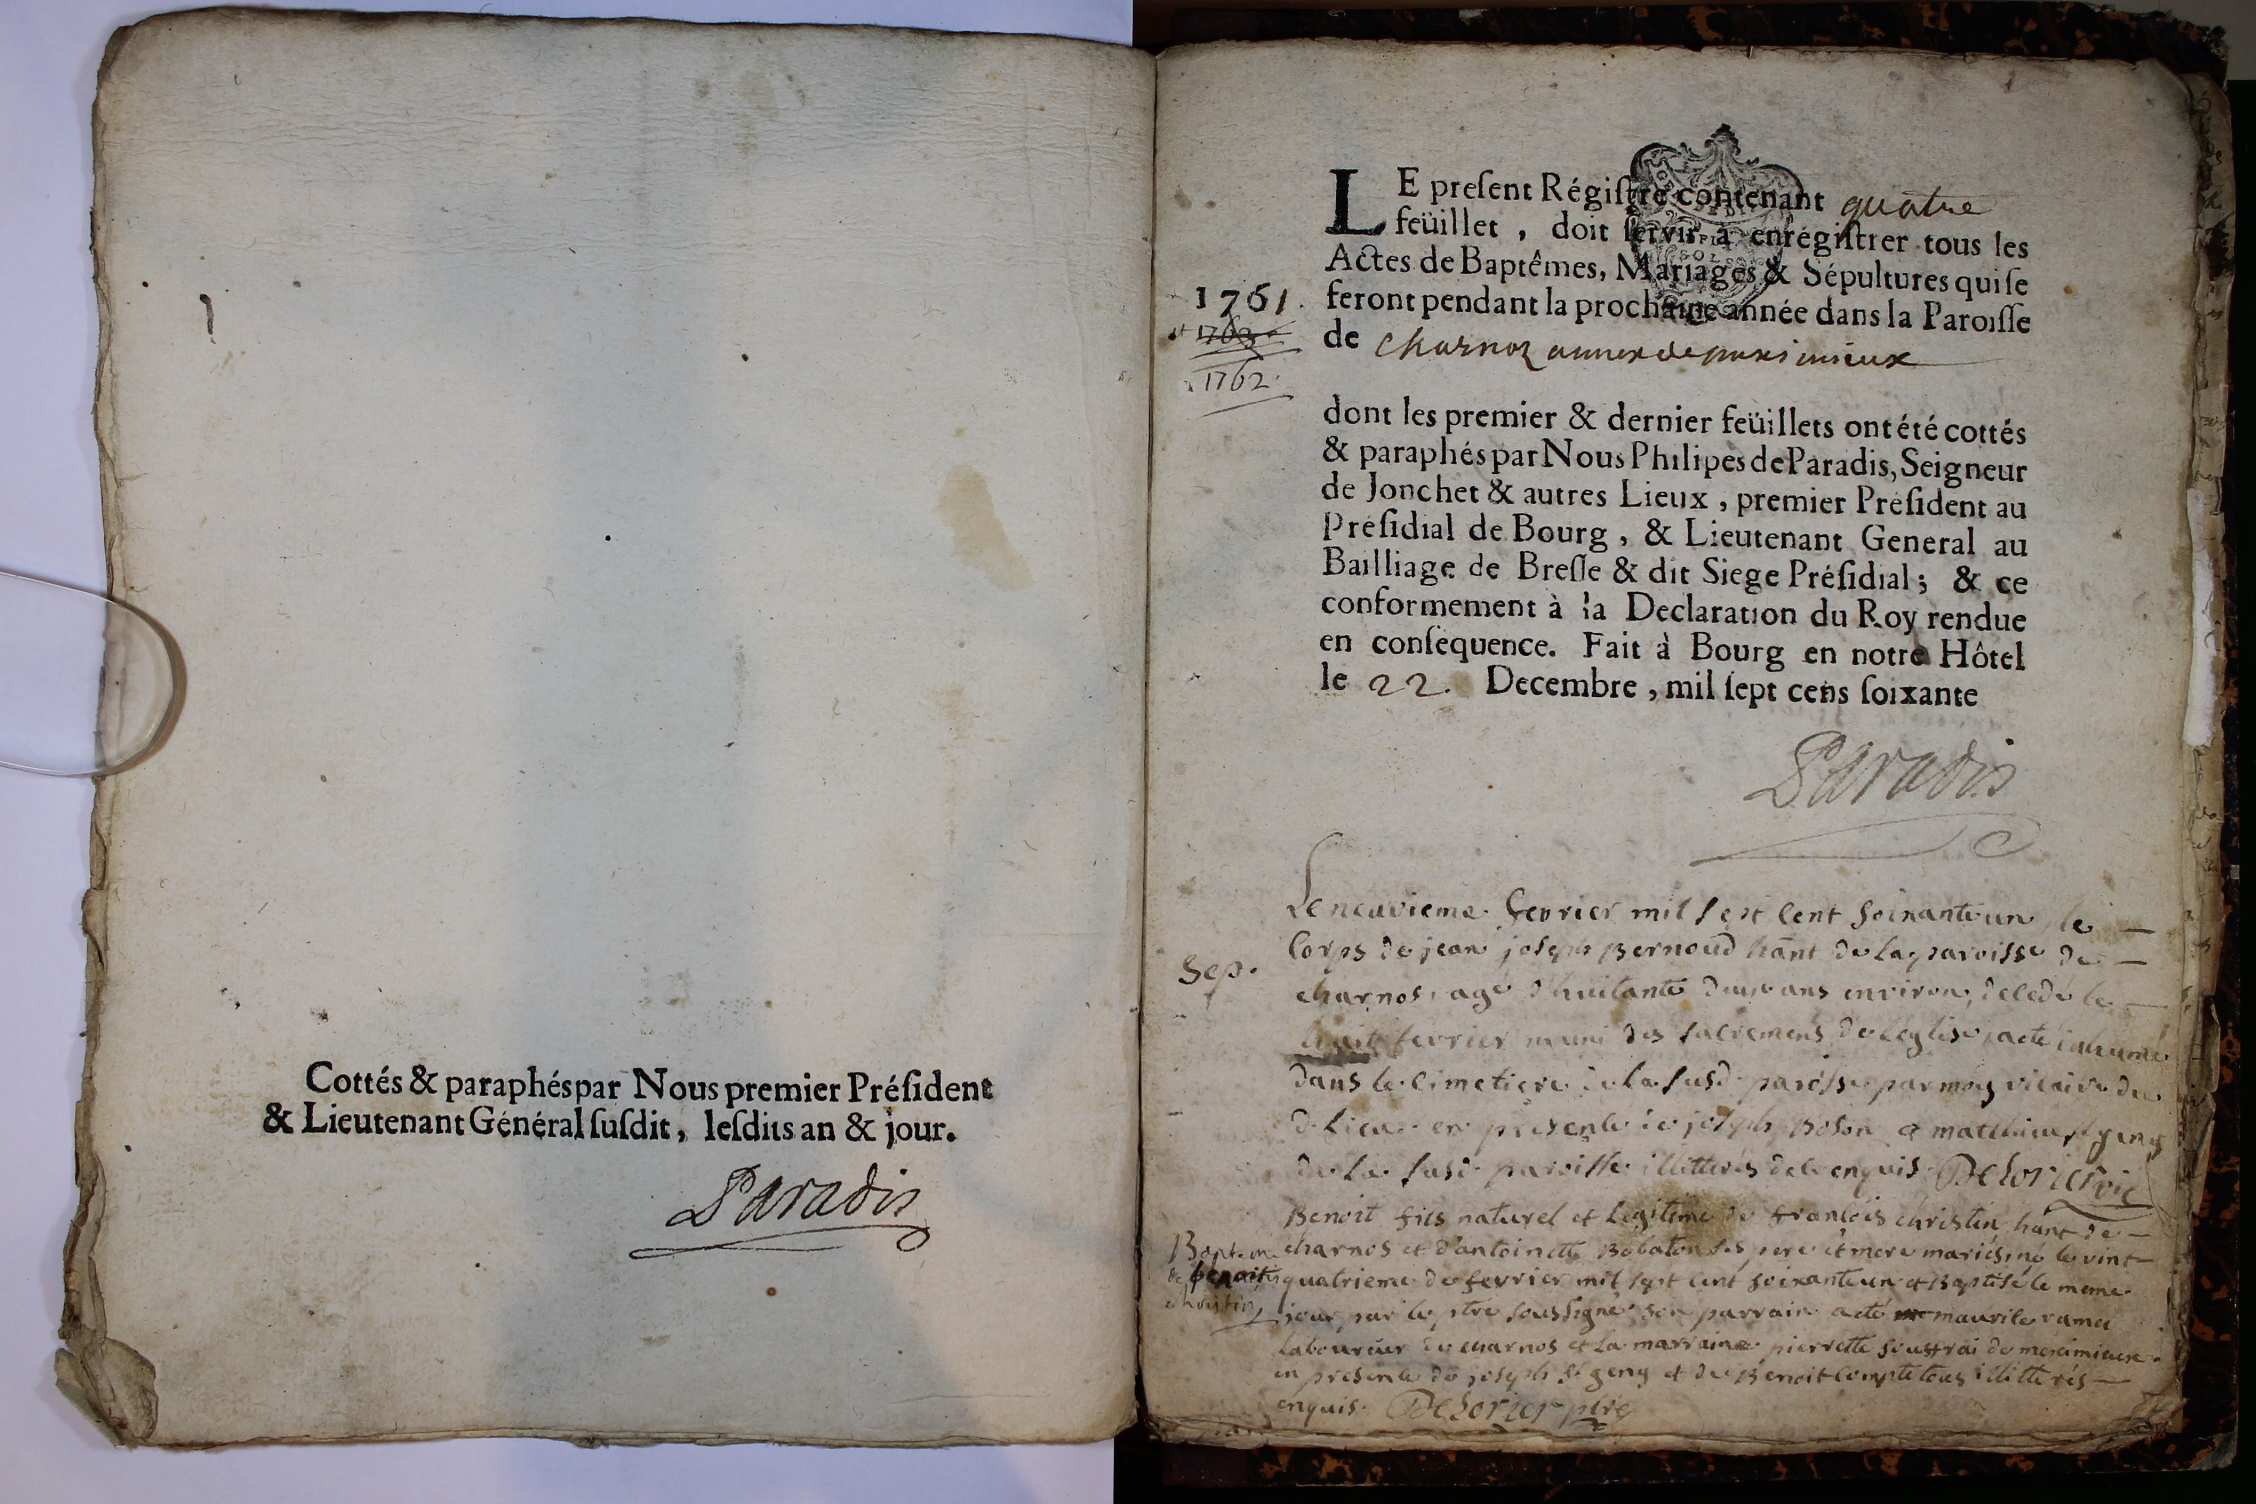 Cottés & paraphés par Nous premier Préſident
& Lieutenant Général ſuſdit, leſdits an & jour.
Paradis
LE preſent Régiſtre contenant quatre
feüillet, doit ſervir à enrégiſtrer tous les
Actes de Baptêmes, Mariages & Sépultures qui ſe
feront pendant la prochaine année dans la Paroiſſe
de charnoz annex de
1761.
et 1763
1762.
dont les premier & dernier feüillets ont été cottés
& paraphés par Nous Philipes de Paradis, Seigneur
de Jonchet & autres Lieux, premier Préſident au
Préſidial de Bourg, & Lieutenant General au
Bailliage de Breſſe & dit Siege Préſidial; & ce
conformement à la Declaration du Roy rendue
en conſequence. Fait à Bourg en notre Hôtel
le 22. Decembre, mil ſept cens ſoixante
Paradis
Sep.
Le neuvieme fevrier mil sept cent soixante un le
Corps de jean joseph Bernoud hant de la paroisse de
charnos, agé d'huitante deux ans environ, decedé le
huit fevrier muni des sacremens de leglise, a eté inhumé
dans le cimetiere de la susd. paroisse par moy vicaire du
d. Lieu en presence de joseph Boson & matthieu
de la susd. paroisse illitterés de ce enquis. Desorier vic
Baptem
de benoit
christin
Benoit fils naturel et legitime de francois christin hant de
charnos et d'antoinette ses pere et mere mariés, né le vint
quatrieme de fevrier mil sept cent soixante un et Baptisé le meme
jour par le ptre soussigné, son parrain a eté maurile ramel
laboureur de charnos et la marraine pierrette de meximieux
en presence de joseph St geny et de Benoit Compte tous illitterés
enquis. Desorier ptre